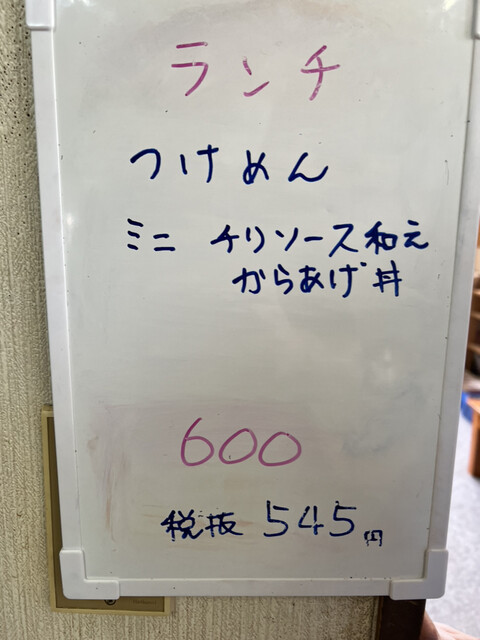 ランチ
つけめん
ミニ チリソース和え
からあげ丼
600
税抜 545円